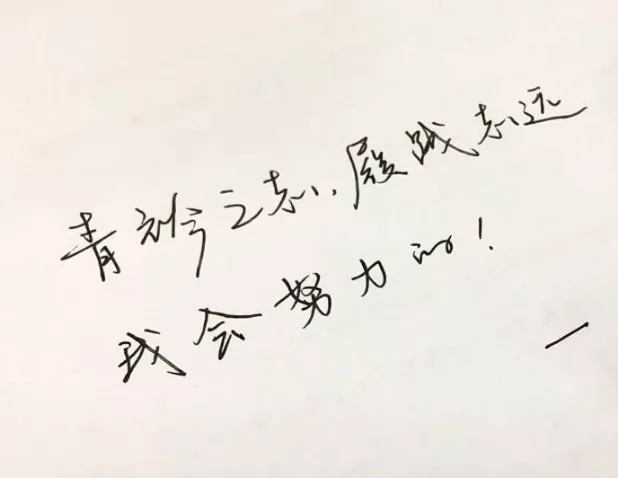 青衿之志、履践志远
我会努力的!